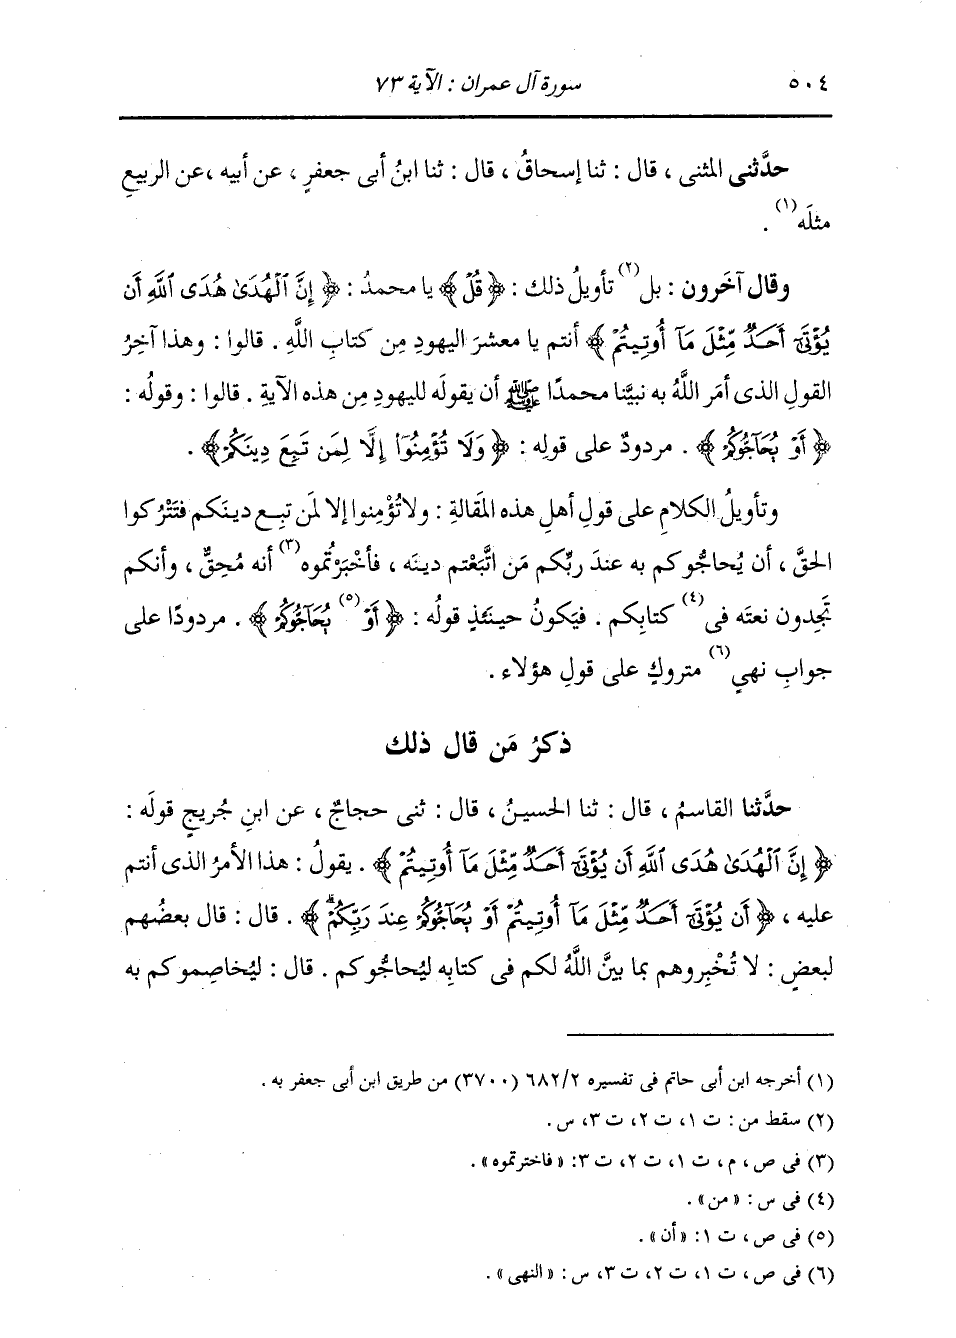 ٥٠٤ سورة آل عمران : الآية ٧٣
حدَّثنى المثنى ، قال : ثنا إسحاقُ ، قال : ثنا ابنُ أبى جعفرٍ ، عن أبيه ، عن الربيعِ
مثلَه(١) .
وقال آخَرون : بل(٢) تأويلُ ذلك : ﴿ قُلْ ﴾ يا محمدُ : ﴿ إِنَّ ٱلْهُدَىٰ هُدَى ٱللَّهِ أَن
يُؤْتَىٰٓ أَحَدٌ مِّثْلَ مَآ أُوتِيتُمْ ﴾ أنتم يا معشرَ اليهودِ مِن كتابِ اللَّهِ . قالوا : وهذا آخِرُ
القولِ الذى أمَر اللَّهُ به نبيَّنا محمدًا ﷺ أن يقولَه لليهودِ مِن هذه الآيةِ . قالوا : وقولُه :
﴿ أَوْ يُحَآجُّوكُمْ ﴾ . مردودٌ على قولِه : ﴿ وَلَا تُؤْمِنُوٓا۟ إِلَّا لِمَن تَبِعَ دِينَكُمْ ﴾ .
وتأويلُ الكلامِ على قولِ أهلِ هذه المَقالةِ : ولا تُؤْمِنوا إلا لمَن تبِع دينَكم فتَتْرُكوا
الحقَّ ، أن يُحاجُّوكم به عندَ ربِّكم مَن اتَّبَعْتم دينَه ، فأَخْبَرْتُموه(٣) أنه مُحِقٌّ ، وأنكم
تَجِدون نعتَه فى(٤) كتابِكم . فيَكونُ حينَئذٍ قولُه : ﴿ أَوْ(٥) يُحَآجُّوكُمْ ﴾ . مردودًا على
جوابِ نهىٍ(٦) متروكٍ على قولِ هؤلاء .
ذكرُ مَن قال ذلك
حدَّثنا القاسمُ ، قال : ثنا الحسينُ ، قال : ثنى حجاجٌ ، عن ابنِ جُريجٍ قولَه :
﴿ إِنَّ ٱلْهُدَىٰ هُدَى ٱللَّهِ أَن يُؤْتَىٰٓ أَحَدٌ مِّثْلَ مَآ أُوتِيتُمْ ﴾ . يقولُ : هذا الأمرُ الذى أنتم
عليه ، ﴿ أَن يُؤْتَىٰٓ أَحَدٌ مِّثْلَ مَآ أُوتِيتُمْ أَوْ يُحَآجُّوكُمْ عِندَ رَبِّكُمْ ۗ ﴾ . قال : قال بعضُهم
لبعضٍ : لا تُخْبِروهم بما بينَّ اللَّهُ لكم فى كتابِه ليُحاجُّوكم . قال : ليُخاصِموكم به
(١) أخرجه ابن أبى حاتم فى تفسيره ٦٨٢/٢ (٣٧٠٠) من طريق ابن أبى جعفر به .
(٢) سقط من : ت ١، ت ٢، ت ٣، س .
(٣) فى ص ، م ، ت ١، ت ٢، ت ٣: « فاخترتموه » .
(٤) فى س : « من » .
(٥) فى ص ، ت ١: « أن » .
(٦) فى ص ، ت ١، ت ٢، ت ٣، س : « النهى » .